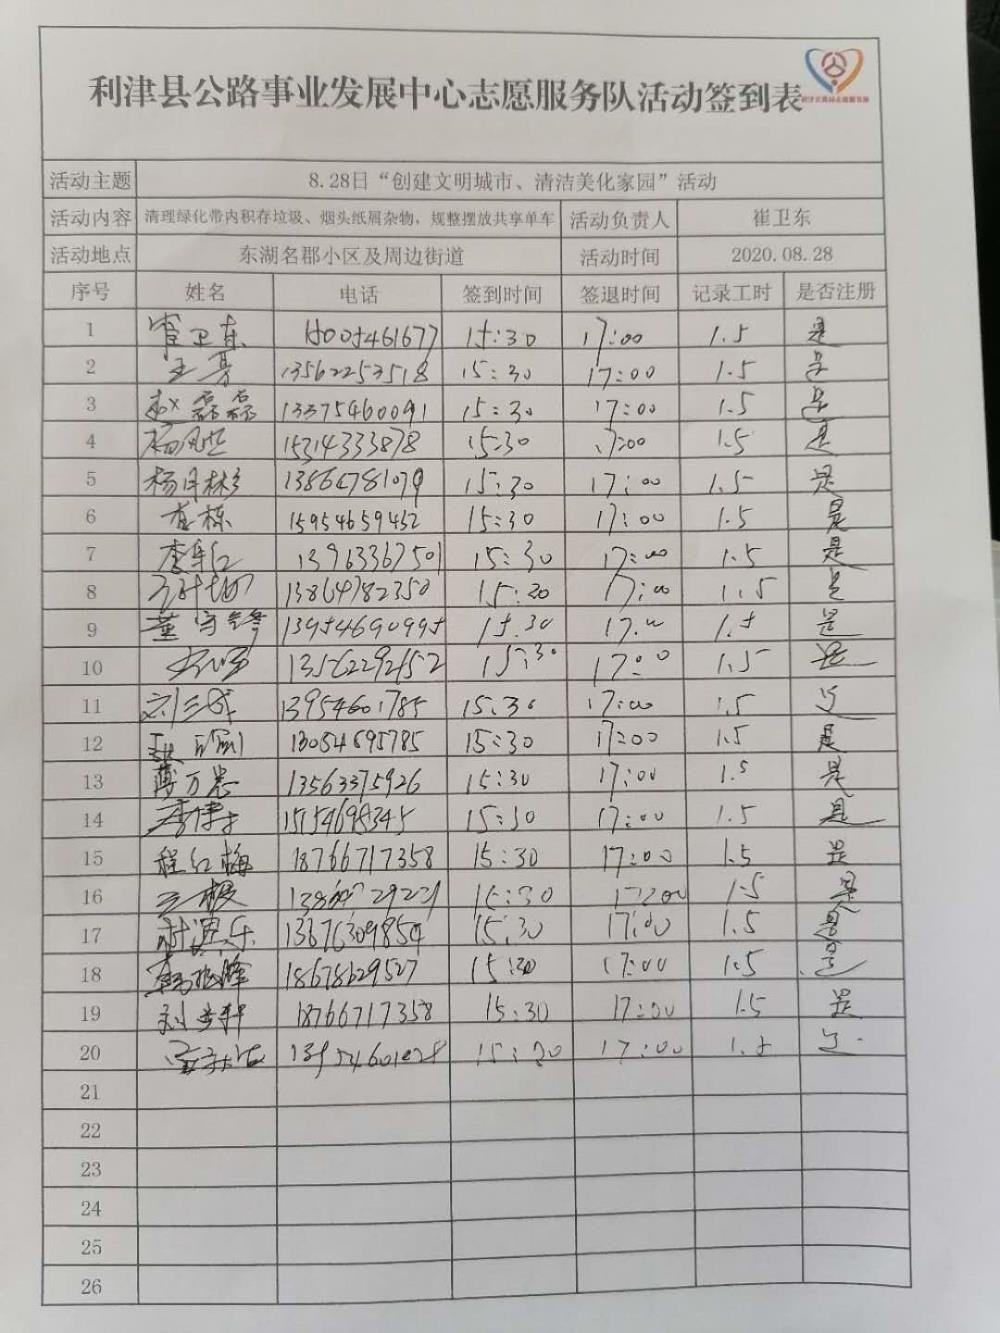 利津县公路事业发展中心志愿服务队活动签到表
活动主题 8.28日“创建文明城市、清洁美化家园”活动
活动内容 清理绿化带内积存垃圾、烟头纸屑杂物，规整摆放共享单车 活动负责人 崔卫东
活动地点 东湖名郡小区及周边街道 活动时间 2020.08.28
序号 姓名 电话 签到时间 签退时间 记录工时 是否注册
1 崔卫东 15:30 17:00 1.5 是
2 王芳 13562253518 15:30 17:00 1.5 是
3 赵磊磊 13375460091 15:30 17:00 1.5 是
4 15314333878 15:30 17:00 1.5 是
5 杨丹彬 13864781079 15:30 17:00 1.5 是
6 李栋 15954659452 15:30 17:00 1.5 是
7 李军红 13963367501 15:30 17:00 1.5 是
8 13864782350 15:20 17:00 1.5 是
9 董宁锋 13954690995 15:30 17:00 1.5 是
10 13562292152 15:30 17:00 1.5 是
11 刘三军 13954601785 15:30 17:00 1.5 是
12 13054695785 15:30 17:00 1.5 是
13 薄万忠 13563375926 15:30 17:00 1.5 是
14 15154698345 15:30 17:00 1.5 是
15 程红梅 18766717358 15:30 17:00 1.5 是
16 15:30 17:00 1.5 是
17 15:30 17:00 1.5 是
18 18678629527 15:30 17:00 1.5 是
19 刘梦轩 18766717358 15:30 17:00 1.5 是
20 15:20 17:00 1.5 是
21
22
23
24
25
26